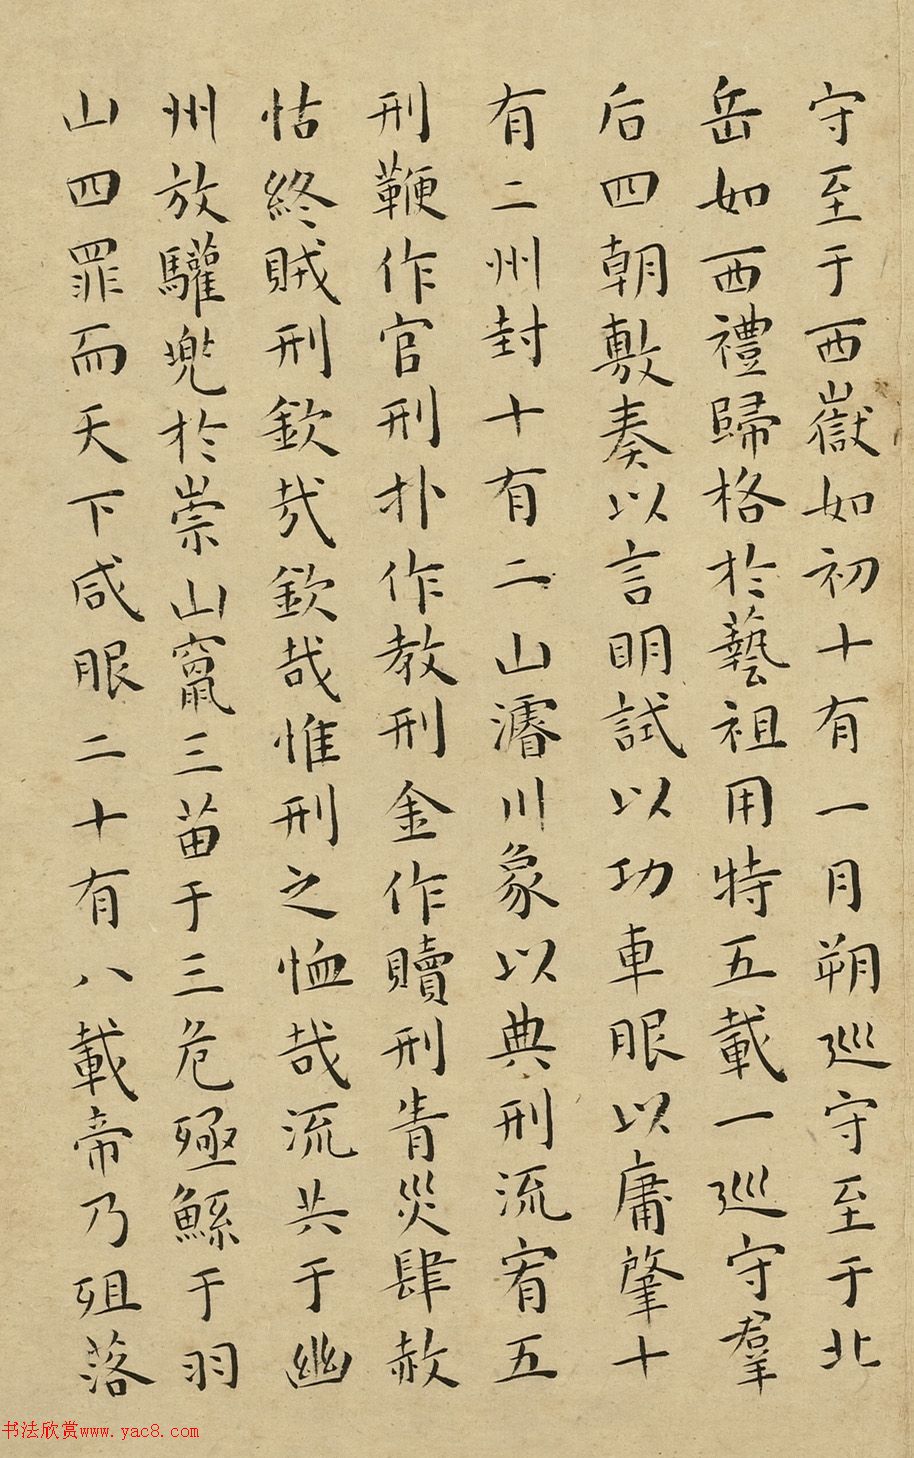 守至于西嶽如初十有一月朔巡守至于北
岳如西禮歸格於藝祖用特五載一巡守羣
后四朝敷奏以言明試以功車眼以庸肇十
有二州封十有二山濬川象以典刑流宥五
刑鞭作官刑扑作教刑金作贖刑眚災肆赦
怙終賊刑欽哉欽哉惟刑之恤哉流共于幽
州放驩兜於崇山竄三苗于三危殛鯀于羽
山四罪而天下咸眼二十有八載帝乃殂落
书法欣赏www.yac8.com